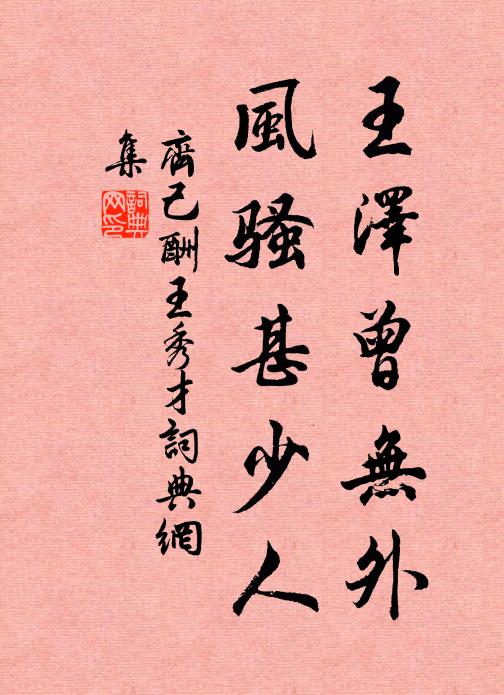 王澤曾無外
風騷甚少人
齊己酬王秀才詞典網
集
詞典網印